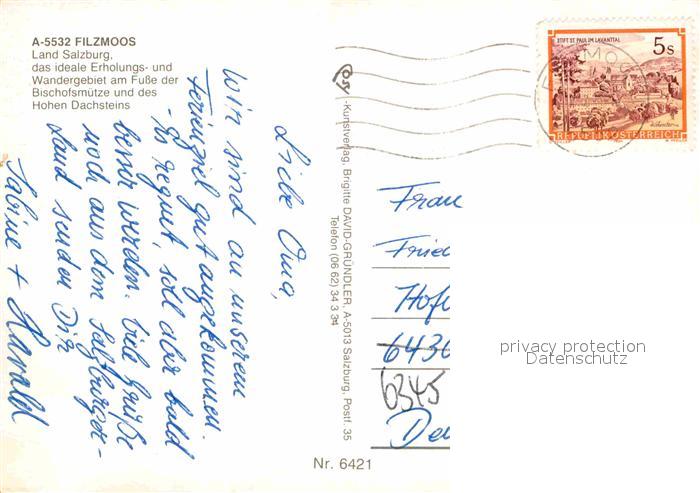 A-5532 FILZMOOS
Land Salzburg,
das ideale Erholungs- und
Wandergebiet am Fuße der
Bischofsmütze und des
Hohen Dachsteins
Liebe Oma,
Wir sind an unserem
Ferienziel gut angekommen.
- Es regnet, soll aber bald
besser werden. Viele Grüße
noch aus dem Salzburger-
Land senden Dir
Sabine + Harald
Cosy-Kunstverlag, Brigitte DAVID-GRÜNDLER, A-5013 Salzburg, Postf. 35
Telefon (06 62) 34 3 34
STIFT ST. PAUL IM LAVANTTAL
5 S
REPUBLIK ÖSTERREICH
Frau
Fried
Hofe
6430
6345
Deu
privacy protection
Datenschutz
Nr. 6421